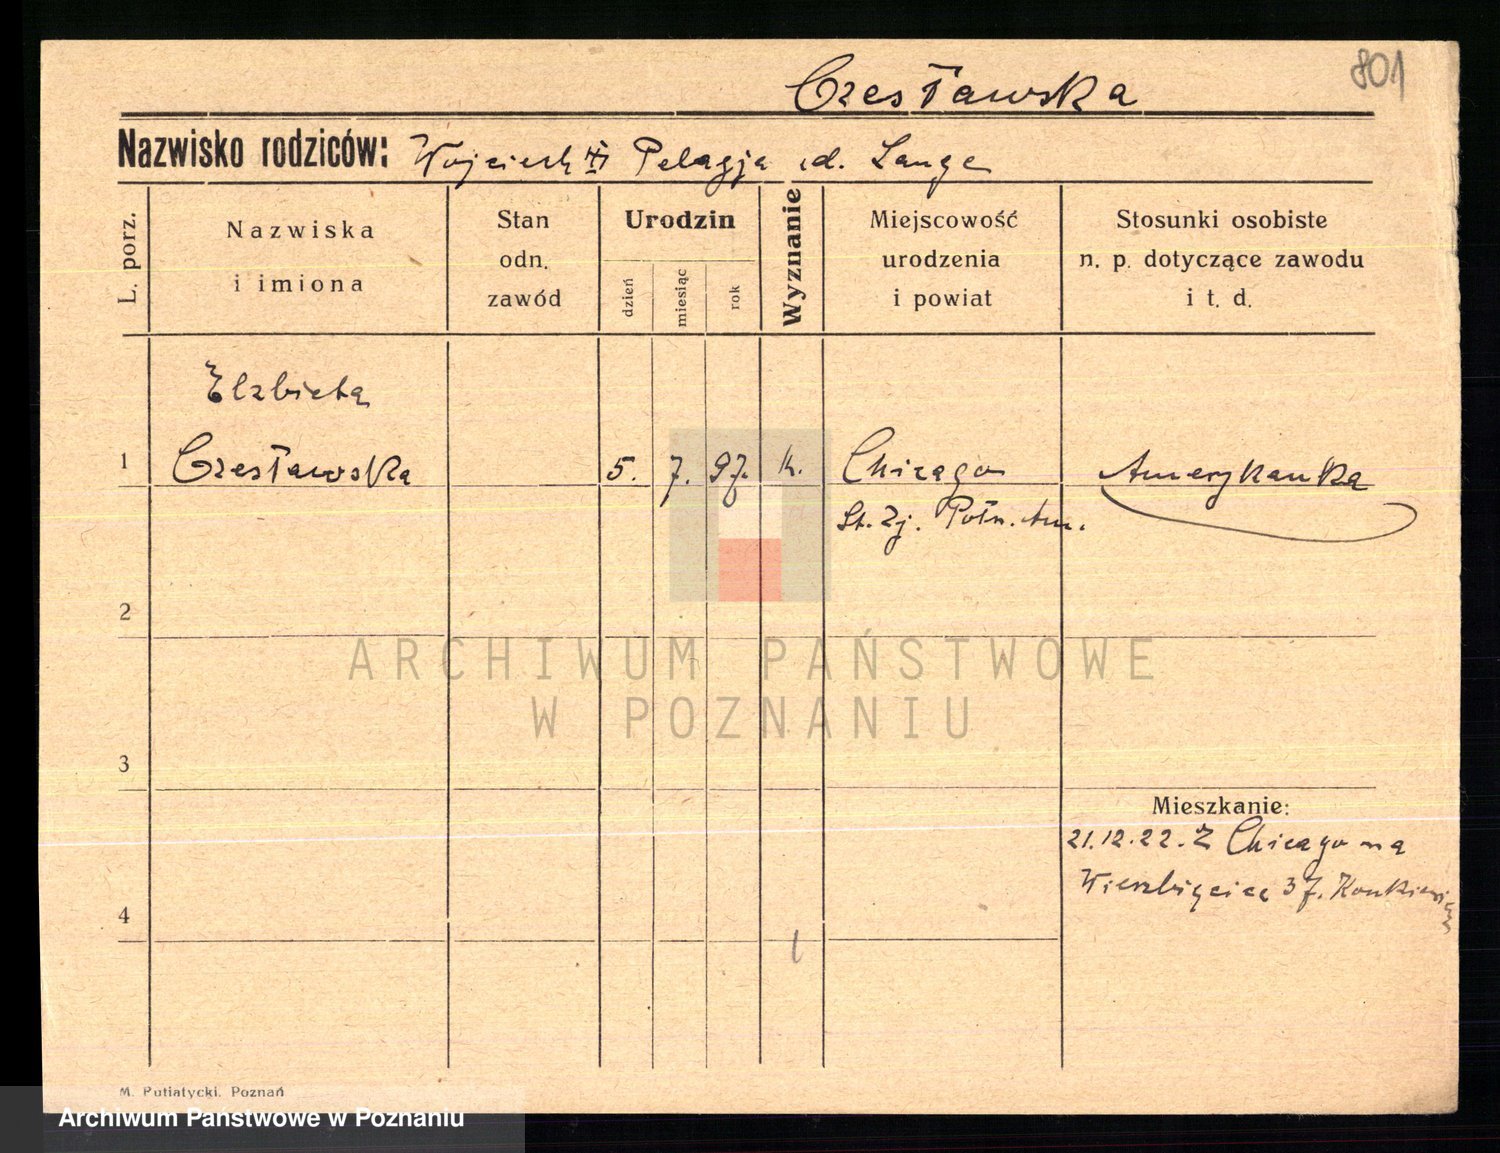 801
Czesławska
Nazwisko rodziców: Wojciech Pelagja d. Lange
L. porz.
Nazwiska
i imiona
Stan
odn.
zawód
Urodzin
dzień
miesiąc
rok
Wyznanie
Miejscowość
urodzenia
i powiat
Stosunki osobiste
n. p. dotyczące zawodu
i t. d.
Elzbieta
1 Czesławska 5. 7. 97. k. Chicago Amerykanka
St. Zj. Połn. Am.
2
ARCHIWUM PAŃSTWOWE
W POZNANIU
3
Mieszkanie:
21.12.22. Z Chicago na
Wierzbięcice 37. Konkiewicz
4
M. Putiatycki, Poznań
Archiwum Państwowe w Poznaniu